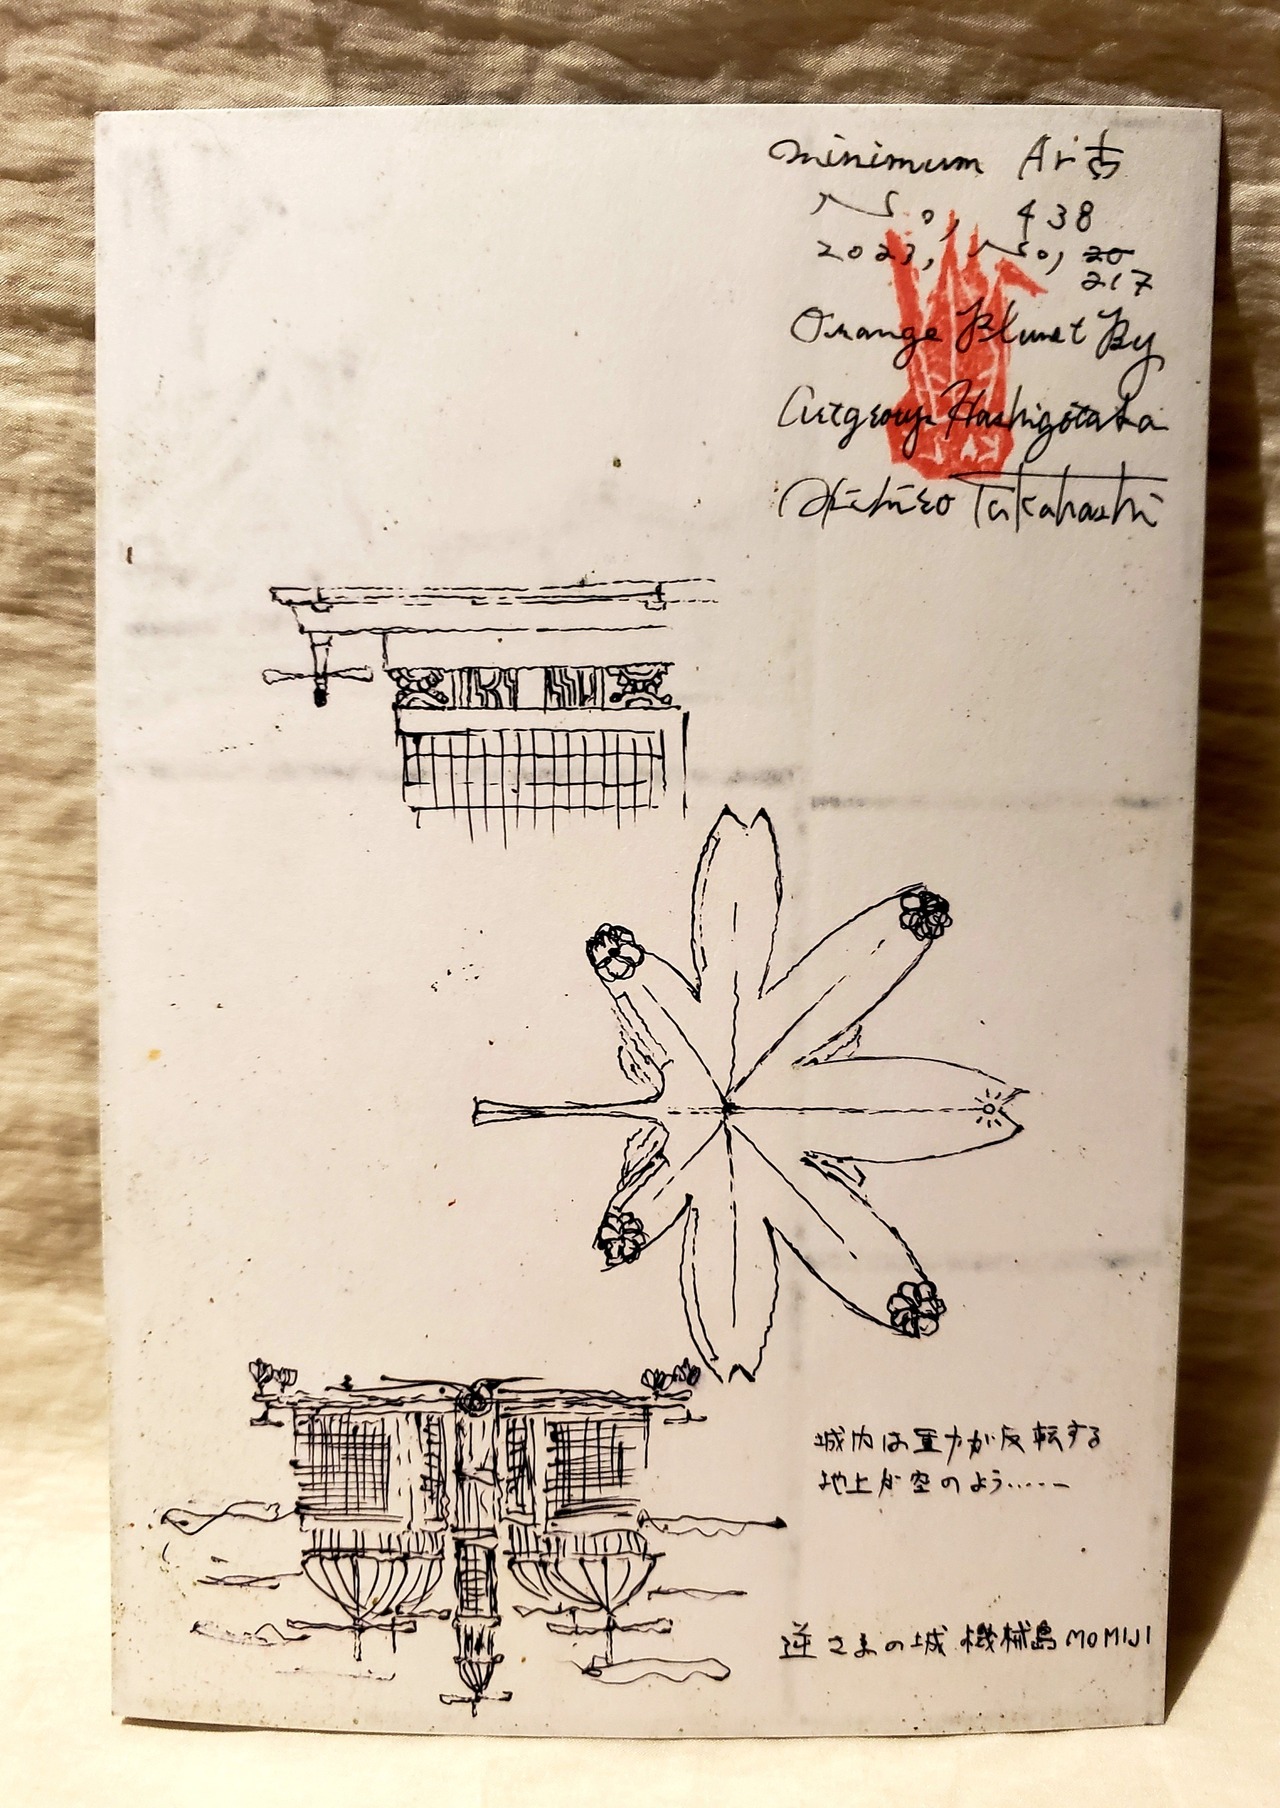 minimum Art
No, 438
2023, No, 20
217
Orange Planet By
Hashigotaka
Takahashi
城内は重力が反転する
地上が空のよう……
逆さまの城 機械島 MOMIJI